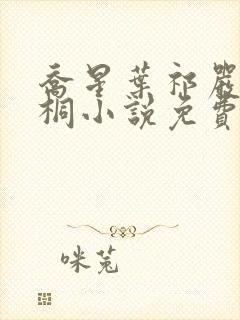 喬星葉祁嚴
桐小說免費
咪菟